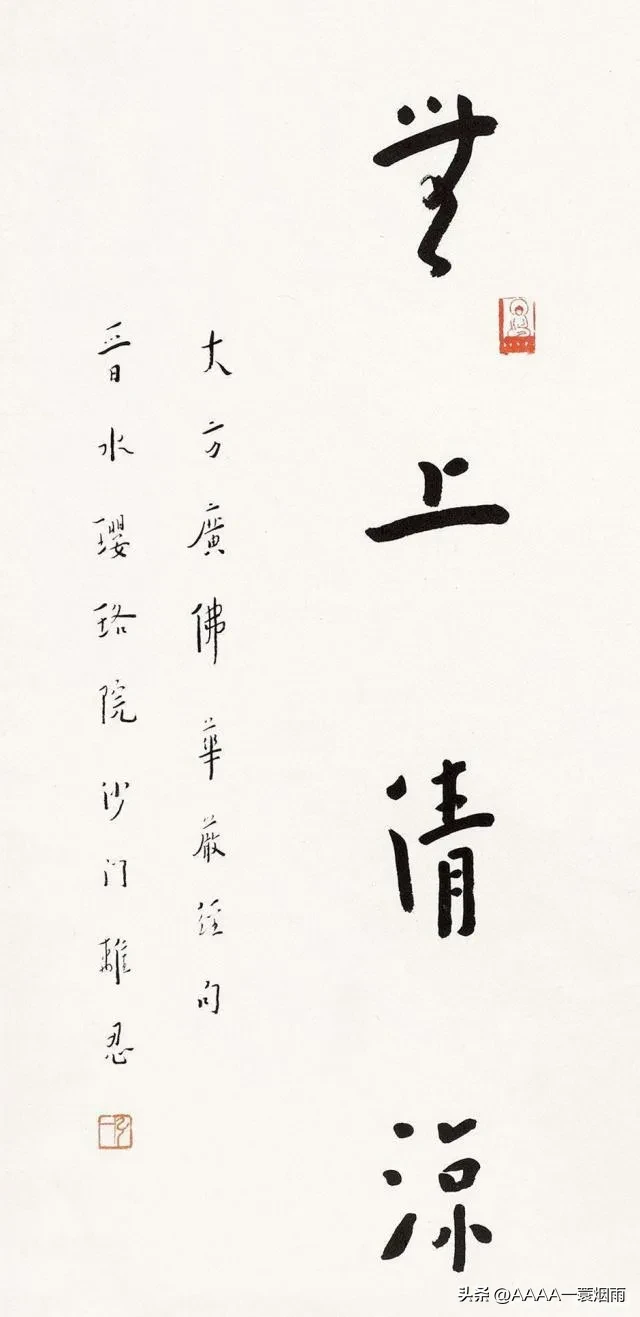 無上清涼
大方廣佛華嚴經句
晉水瓔珞院沙門忍
弘一
头条 @AAAA一蓑烟雨